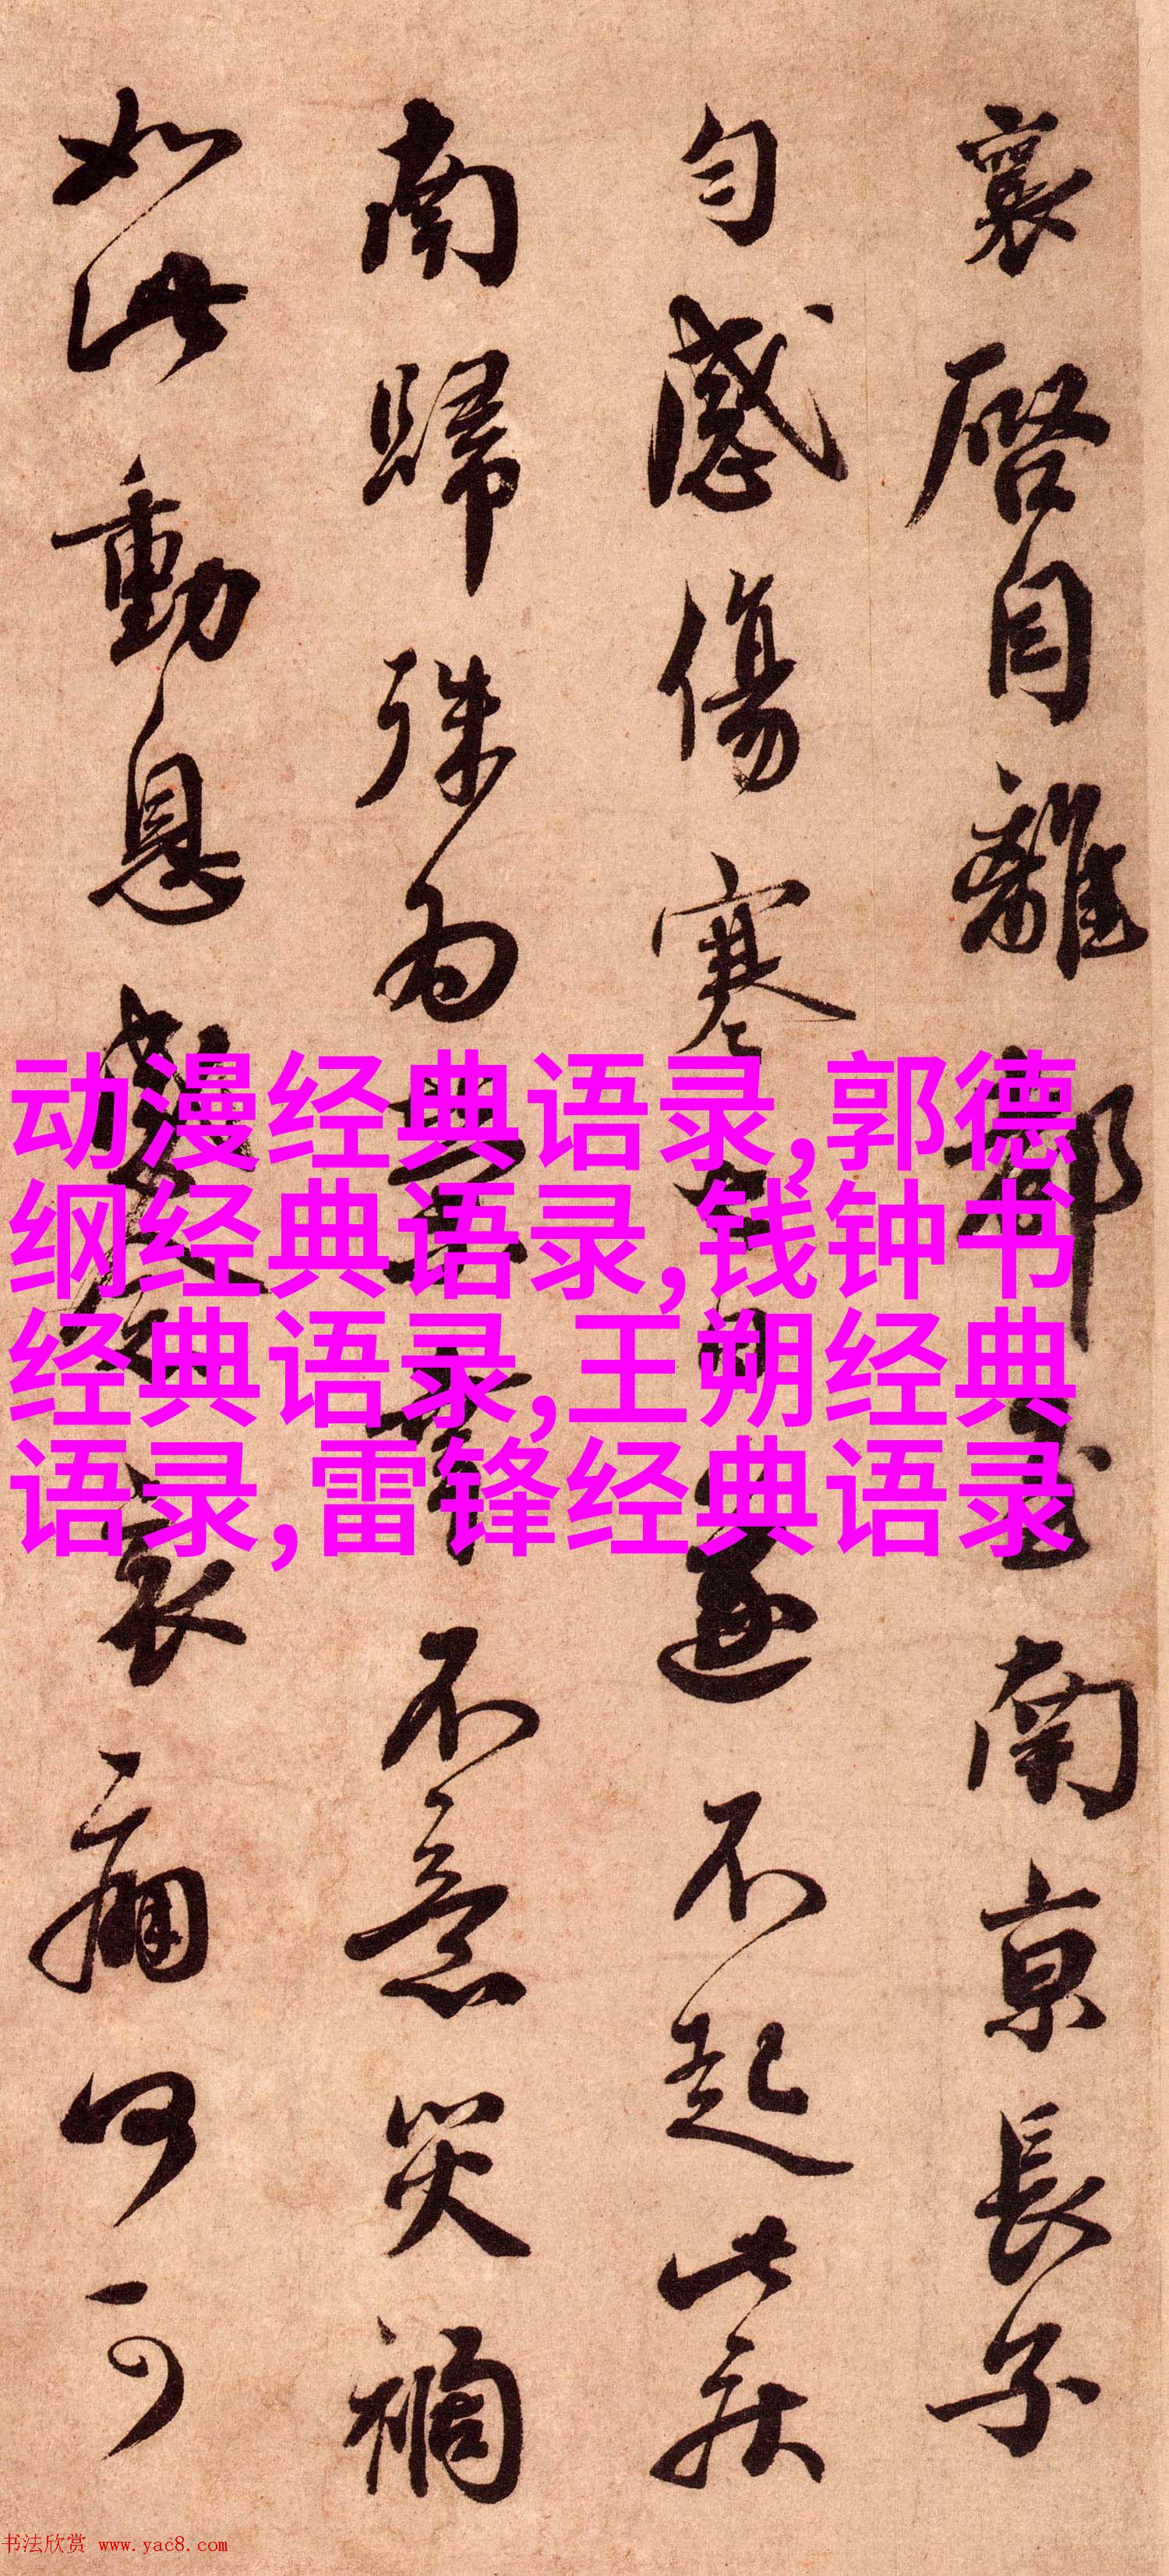 襄啓自離都至南京長子
勻感傷寒七日遂不起此疾
南歸殊爲無悰不意災禍
如此動息哀痛何可
动漫经典语录,郭德
纲经典语录,钱钟书
经典语录,王朔经典
语录,雷锋经典语录
书法欣赏 www.yac8.com